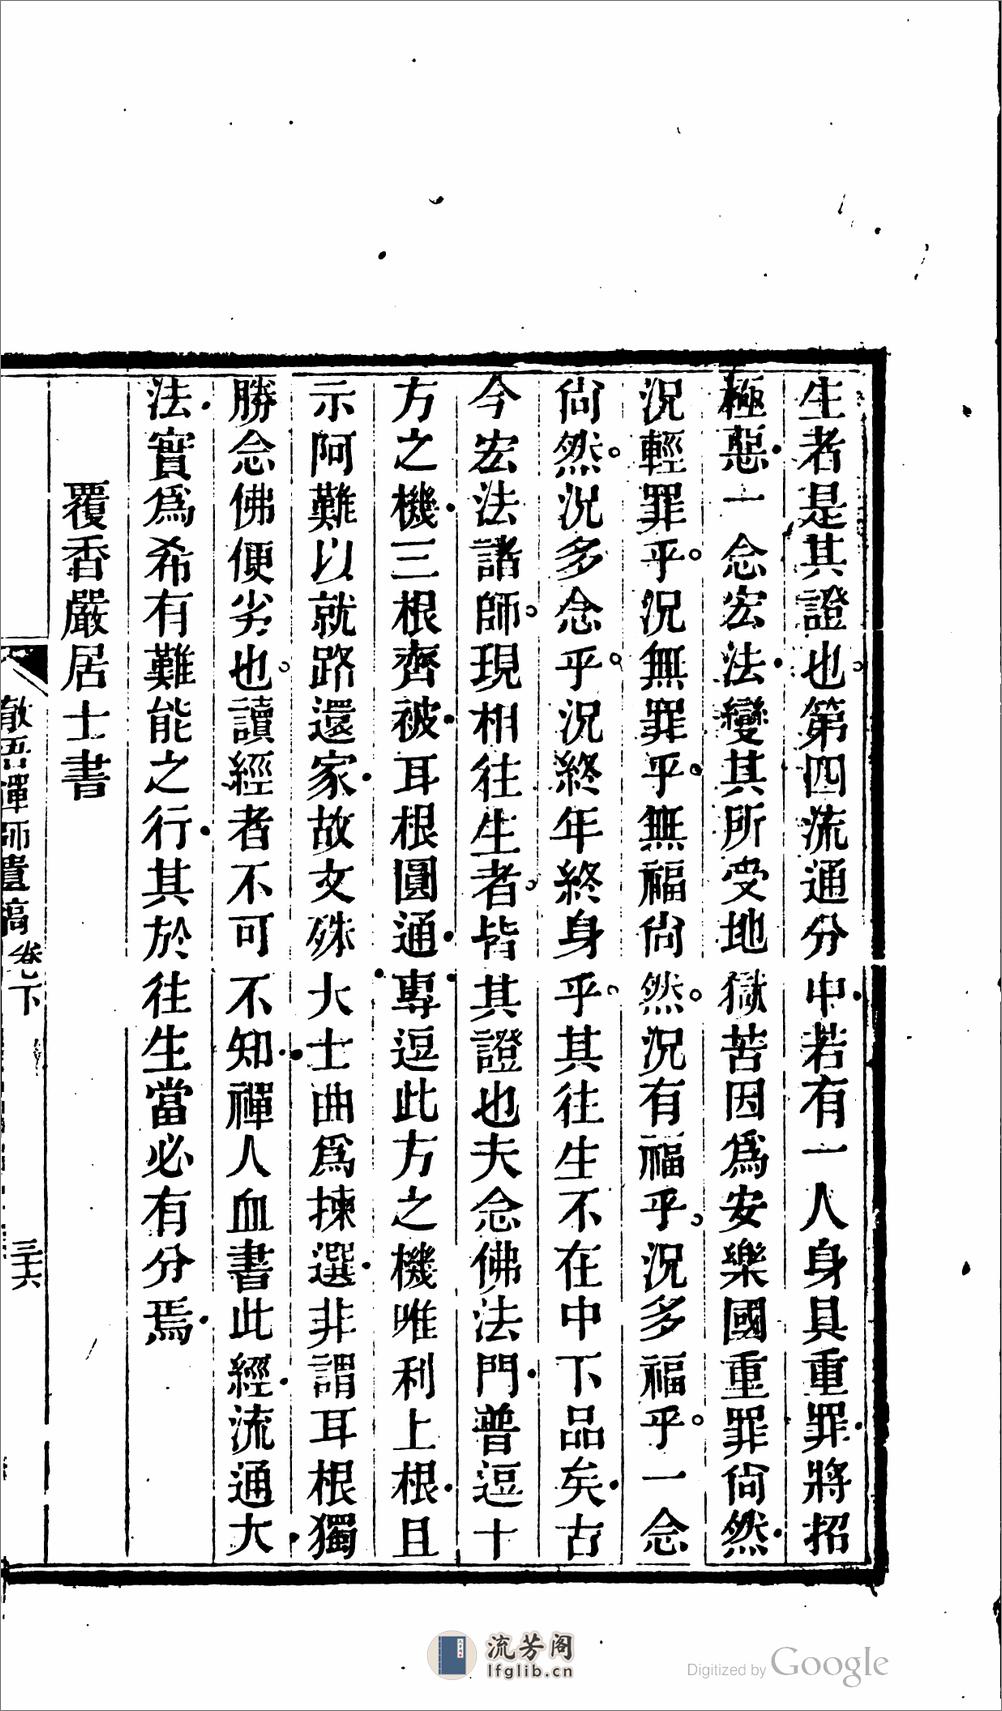 生者是其證也。第四流通分中若有一人身具重罪將招
極惡一念宏法變其所受地獄苦因爲安樂國重罪尙然
況輕罪乎。況無罪乎。無福尙然。況有福乎。況多福乎。一念
尙然。況多念乎。況終年終身乎。其往生不在中下品矣古
今宏法諸師。現相往生者。皆其證也夫念佛法門普逗十
方之機三根齊被耳根圓通專逗此方之機唯利上根且
示阿難以就路還家故文殊大士曲爲揀選非謂耳根獨
勝念佛便劣也。讀經者不可不知禪人血書此經流通大
法實爲希有難能之行其於往生當必有分焉
覆香嚴居士書
徹悟禪師遺稿 卷下
三十六
流芳阁
lfglib.cn
Digitized by Google